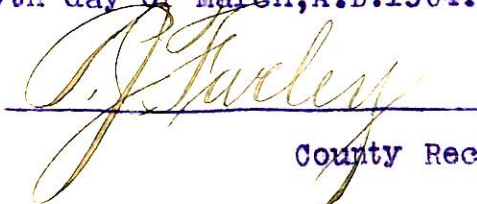 day of March,A.D.1904.
P. J. Farley
County Rec